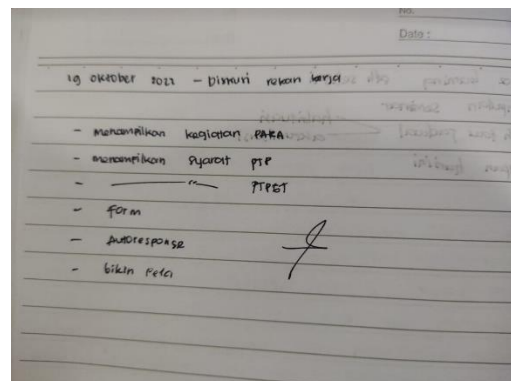 No.
Date :
19 oktober 2022 - Diskusi rekan kerja
- menampilkan kegiatan PAKA
- menampilkan syarat PTP
- —— " —— PTPST
- Form
- Autoresponse
- bikin Peta